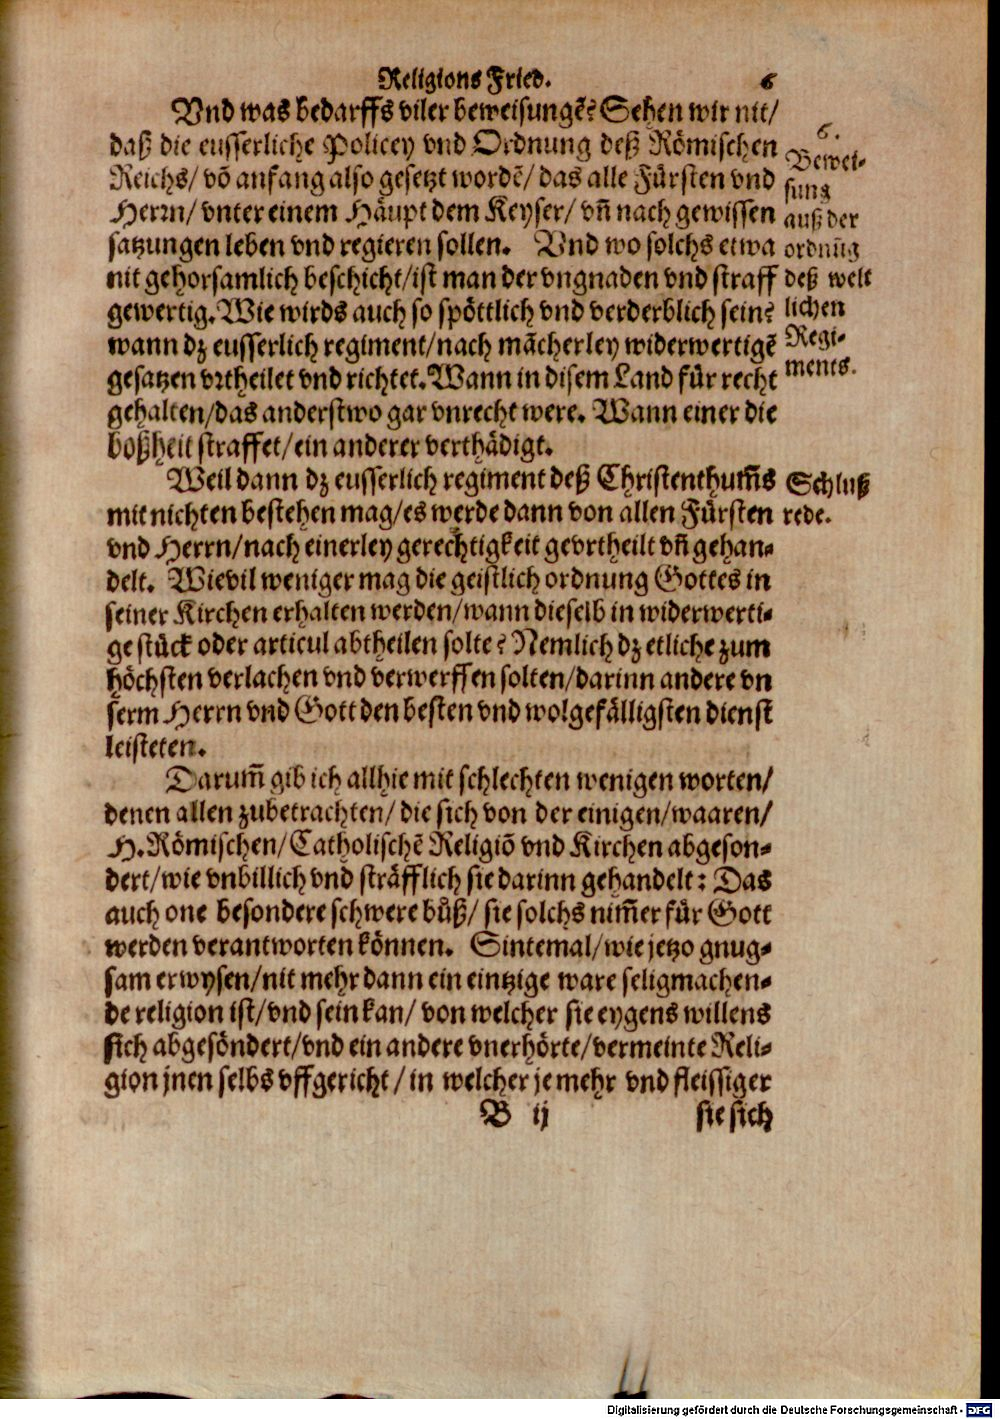 Religions Fried. 6
Vnd was bedarffs viler beweisungē? Sehen wir nit/
daß die eusserliche Policey vnd Ordnung deß Römischen
Reichs/ võ anfang also gesetzt wordē/ das alle Fürsten vnd
Herrn/ vnter einem Häupt dem Keyser/ vñ nach gewissen
satzungen leben vnd regieren sollen. Vnd wo solchs etwa
nit gehorsamlich beschicht/ist man der vngnaden vnd straff
gewertig. Wie wirds auch so spöttlich vnd verderblich sein?
wann dz eusserlich regiment/nach mãcherley widerwertigē
gesatzen vrtheilet vnd richtet. Wann in disem Land für recht
gehalten/das anderstwo gar vnrecht were. Wann einer die
boßheit straffet/ein anderer verthädigt.
6.
Bewei-
sung
auß der
ordnũg
deß welt
lichen
Regi-
ments.
Weil dann dz eusserlich regiment deß Christenthum̃s
mit nichten bestehen mag/es werde dann von allen Fürsten
vnd Herrn/nach einerley gerechtigkeit gevrtheilt vñ gehan-
delt. Wievil weniger mag die geistlich ordnung Gottes in
seiner Kirchen erhalten werden/wann dieselb in widerwerti-
ge stück oder articul abtheilen solte? Nemlich dz etliche zum
höchsten verlachen vnd verwerffen solten/darinn andere vn
serm Herrn vnd Gott den besten vnd wolgefälligsten dienst
leisteten.
Schluß
rede.
Darum̃ gib ich allhie mit schlechten wenigen worten/
denen allen zubetrachten/ die sich von der einigen/waaren/
H. Römischen/Catholischē Religiõ vnd Kirchen abgeson-
dert/wie vnbillich vnd sträfflich sie darinn gehandelt: Das
auch one besondere schwere bůß/ sie solchs nim̃er für Gott
werden verantworten können. Sintemal/wie jetzo gnug-
sam erwysen/nit mehr dann ein eintzige ware seligmachen-
de religion ist/vnd sein kan/ von welcher sie eygens willens
sich abgesöndert/vnd ein andere vnerhörte/vermeinte Reli-
gion jnen selbs vffgericht/in welcher je mehr vnd fleissiger
B ij sie sich
Digitalisierung gefördert durch die Deutsche Forschungsgemeinschaft - DFG